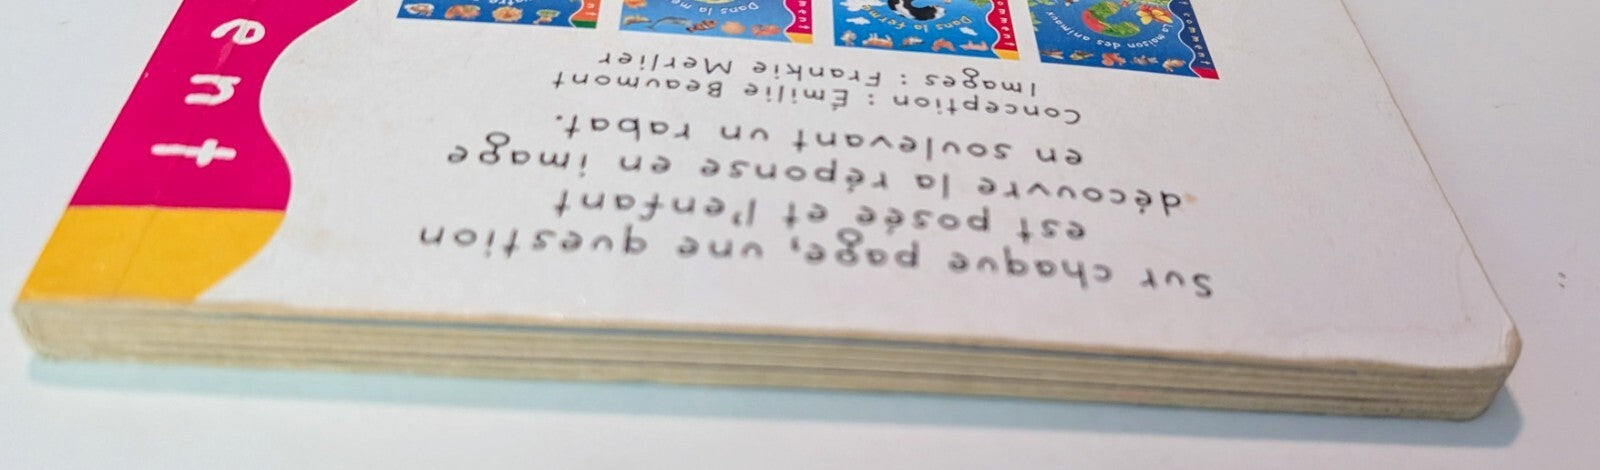 Sur chaque page, une question
est posée et l'enfant
découvre la réponse en image
en soulevant un rabat.
Conception : Émilie Beaumont
Images : Frankie Merlier
La maison des animaux
Dans la ferme
Dans la
ent